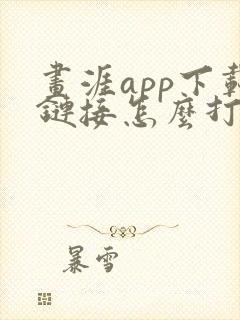 畫涯app下載
鏈接怎麼打
暴雪